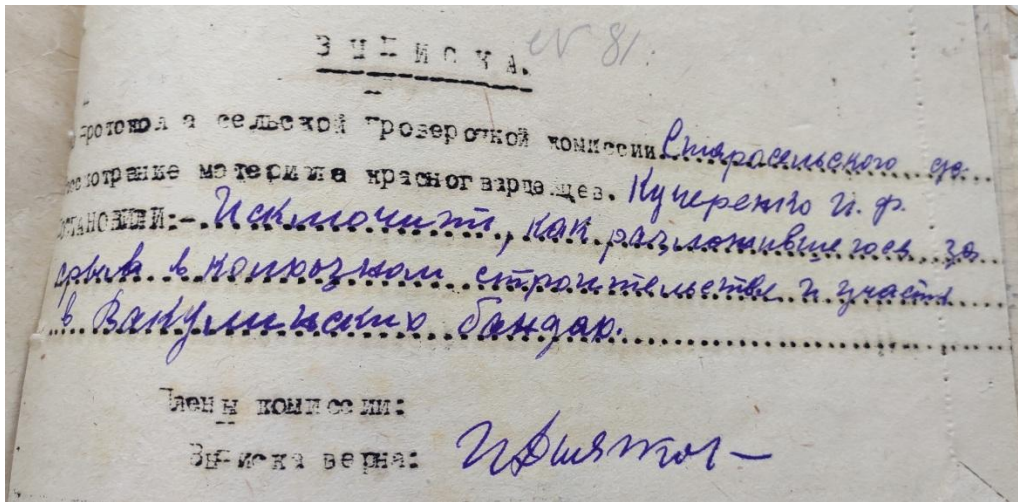 № 81.
ВЫПИСКА.
протокола сельской проверочной комиссии Старосельского
материала красногвардейцев. Кучеренко И. Ф.
Исключить, как разложившегося за
срыв в колхозном строительстве и участи
в Вакулинских бандах.
Члены комиссии:
Выписка верна: